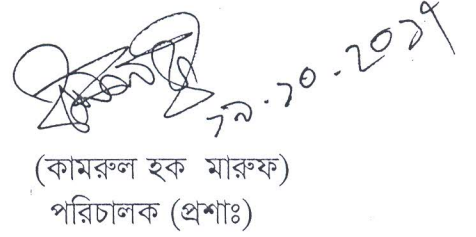 ২৯.১০.২০১৭
(কামরুল হক মারুফ)
পরিচালক (প্রশাঃ)